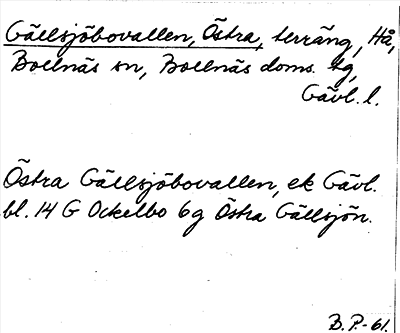 Gällsjöbovallen, Östra, terräng, Hå,
Bollnäs sn, Bollnäs doms. tg,
Gävl. l.
Östra Gällsjöbovallen, ek Gävl.
bl. 14 G Ockelbo 6g Östra Gällsjön.
B.P.-61.